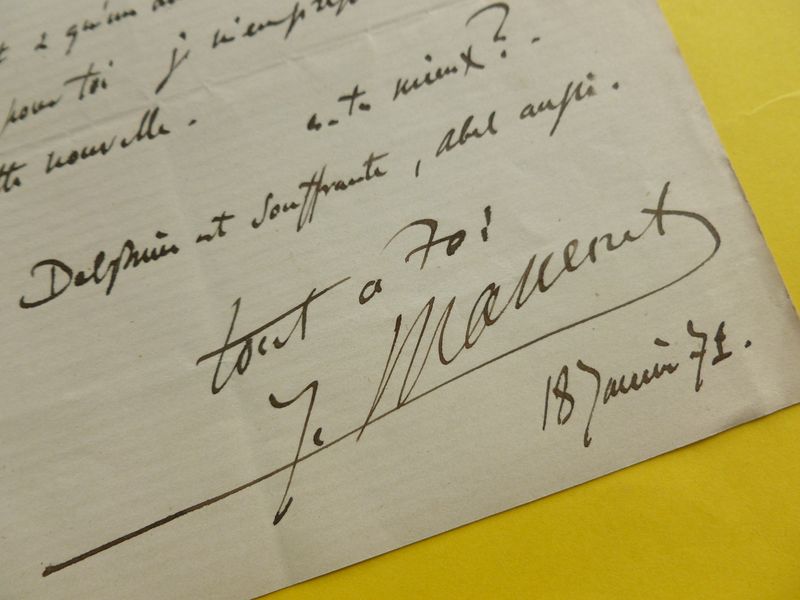 qu'un
pour toi je n'empres
nouvelle. es-tu mieux?.
Delphine est souffrante, Abel aussi.
tout a toi
J. Massenet
18 Janvier 71.